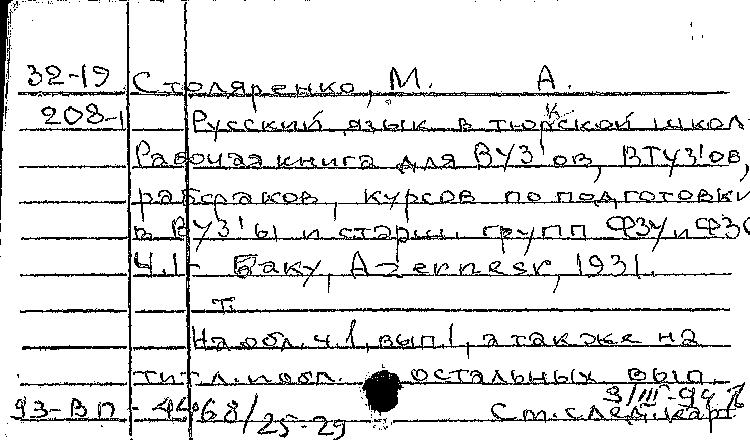 32-19 Столяренко, М. А.
208-1 Русский язык в тюркской школ
Рабочая книга для ВУЗ'ов, ВТУЗ'ов,
рабфаков, курсов по подготовки
в ВУЗ'ы и старш. групп ФЗУ и ФЗС
Ч.1- Баку, Azernesr, 1931.
т.
На обл. ч.1, вып.1, а также на
тит.л. и обл. остальных вып.
93-ВП-4468/25-29 См. след. карт